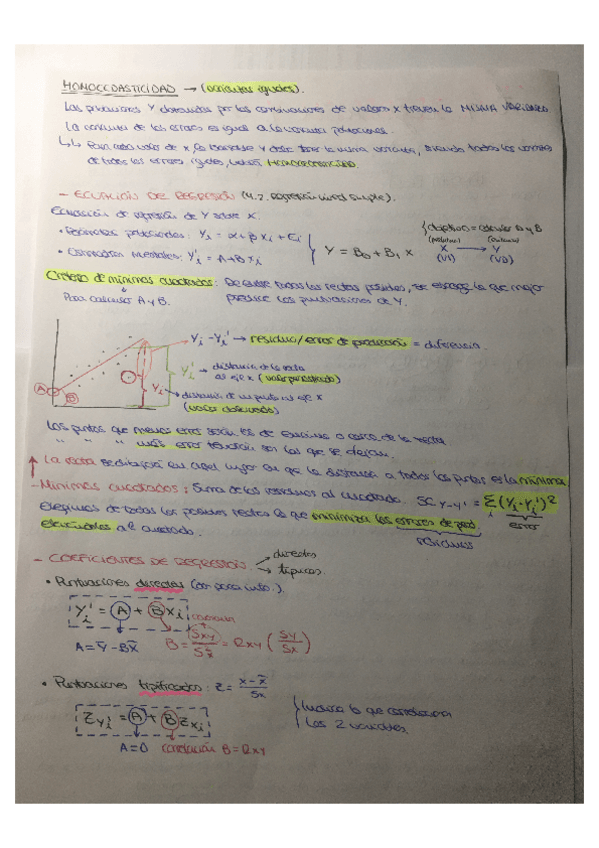 HOMOCEDASTICIDAD → (varianzas iguales).
Las puntuaciones Y obtenidas por las combinaciones de valores X tienen la MISMA VARIANZA
La varianza de los errores es igual a la varianza
↳ Para cada valor de x, la variable Y debe tener la misma varianza, siendo todas las varianzas
de todos los errores iguales, habrá HOMOCEDASTICIDAD.
- ECUACIÓN DE REGRESIÓN (4.2. Regresión lineal simple).
Ecuación de regresión de Y sobre X.
• Parámetros poblacionales: Yi = α + β Xi + Ei
• Estimadores muestrales: Yi' = A + B Xi
Y = B0 + B1 X
objetivo = calcular A y B
(predictora) X (VI) → Y (VD)
Criterio de mínimos cuadrados: De entre todas las rectas posibles, se escoge la que mejor
Para calcular A y B. predice las puntuaciones de Y.
Yi - Yi' → residuo/error de predicción = diferencia.
Yi' → distancia de la recta
al eje x (valor pronosticado)
Yi → distancia de un punto al eje X
(valor observado)
A
B
Los puntos que menos error serán los de encima o cerca de la recta
" " " más error tendrán son los que se alejan.
↑ La recta se dibujará en aquel lugar en que la distancia a todos los puntos es la mínima
- Mínimos cuadrados: Suma de los residuos al cuadrado. SC Y-Y' = Σ (Yi - Yi')²
error
elegimos de todas las posibles rectas la que minimiza los errores de pred.
elevándolos al cuadrado. residuos
- COEFICIENTES DE REGRESIÓN → directas
→ típicas.
• Puntuaciones directas
Yi' = A + B Xi
A = Ȳ - B X̄
B = Sxy / Sx² = Rxy (Sy / Sx)
• Puntuaciones tipificadas: Z = x - x̄ / Sx
ZYi' = A + B ZXi
A = 0 correlación B = Rxy
lo que correlacionan
las 2 variables.